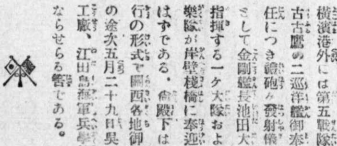 横濱港外には第五戰隊
古鷹の二巡洋艦御奉
任につき禮砲を發射儀
として金剛艦長池田大
指揮する一ケ大隊および
樂隊が岸壁棧橋に奉迎
はずである。尙殿下は
行の形式で關西各地御
の金次五月二十九日吳
工廠、江田島海軍兵學
ならせらる筈である。